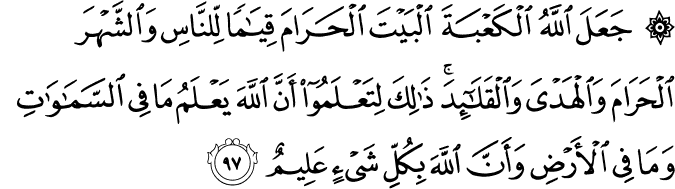 ۞ جَعَلَ ٱللَّهُ ٱلۡكَعۡبَةَ ٱلۡبَيۡتَ ٱلۡحَرَامَ قِيَٰمٗا لِّلنَّاسِ وَٱلشَّهۡرَ
ٱلۡحَرَامَ وَٱلۡهَدۡيَ وَٱلۡقَلَٰٓئِدَۚ ذَٰلِكَ لِتَعۡلَمُوٓاْ أَنَّ ٱللَّهَ يَعۡلَمُ مَا فِي ٱلسَّمَٰوَٰتِ
وَمَا فِي ٱلۡأَرۡضِ وَأَنَّ ٱللَّهَ بِكُلِّ شَيۡءٍ عَلِيمٌ ٩٧